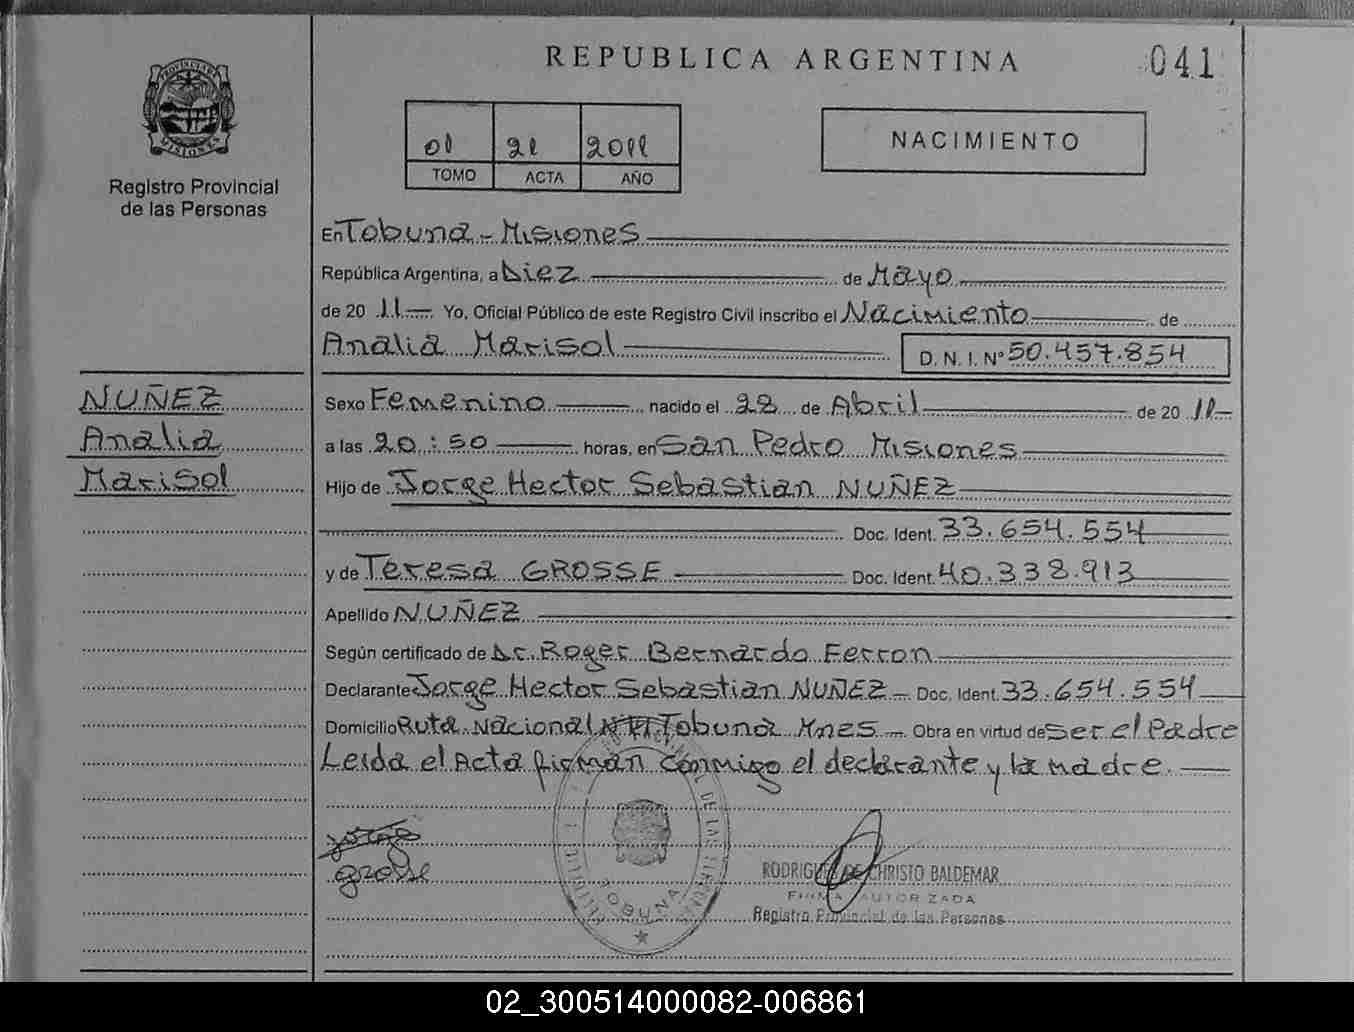 REPUBLICA ARGENTINA
041
PROVINCIA DE
MISIONES
Registro Provincial
de las Personas
01 21 2011
TOMO ACTA AÑO
NACIMIENTO
En Tobuna - Misiones
República Argentina, a Diez de Mayo
de 20 11 Yo, Oficial Público de este Registro Civil inscribo el Nacimiento de
Analia Marisol D. N. I. Nº 50.457.854
NUÑEZ
Analia
Marisol
Sexo Femenino nacido el 28 de Abril de 20 11
a las 20:50 horas, en San Pedro Misiones
Hijo de Jorge Hector Sebastian NUÑEZ
Doc. Ident. 33.654.554
y de Teresa GROSSE Doc. Ident. 40.338.913
Apellido NUÑEZ
Según certificado de Dr. Roger Bernardo Ferron
Declarante Jorge Hector Sebastian NUÑEZ Doc. Ident. 33.654.554
Domicilio Ruta Nacional Nº Tobuna Mnes Obra en virtud de Ser el Padre
Leida el Acta firman conmigo el declarante y la madre.
Jorge
grosse
TOBUNA
RODRIGUEZ DE CHRISTO BALDEMAR
FIRMA AUTORIZADA
Registro Provincial de las Personas
02_300514000082-006861